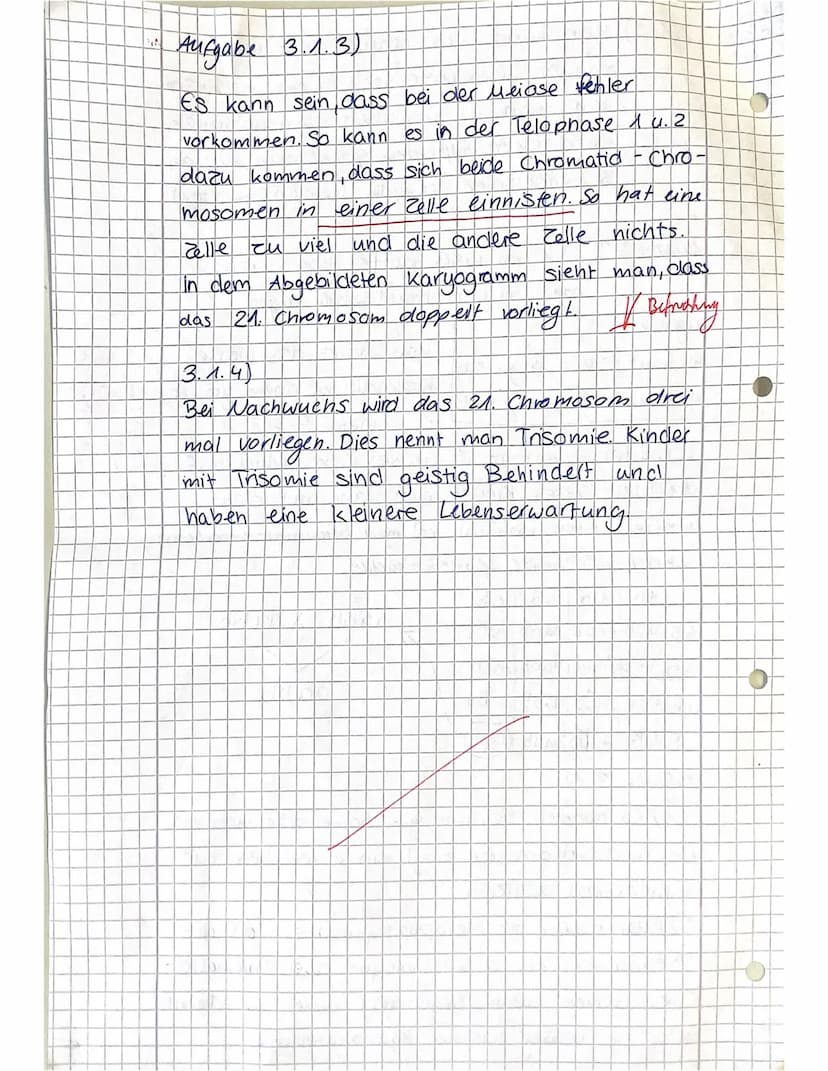 Aufgabe 3.1.3)
Es kann sein, dass bei der Meiose fehler
vorkommen. So kann es in der Telophase 1 u. 2
dazu kommen, dass sich beide Chromatid - Chro-
mosomen in einer Zelle einnisten. So hat eine
Zelle zu viel und die andere Zelle nichts.
In dem Abgebildeten Karyogramm sieht man, dass
das 21. Chromosom doppelt vorliegt. Befruchtung
3.1.4)
Bei Nachwuchs wird das 21. Chromosom drei
mal vorliegen. Dies nennt man Trisomie. Kinder
mit Trisomie sind geistig Behindert und
haben eine kleinere Lebenserwartung.